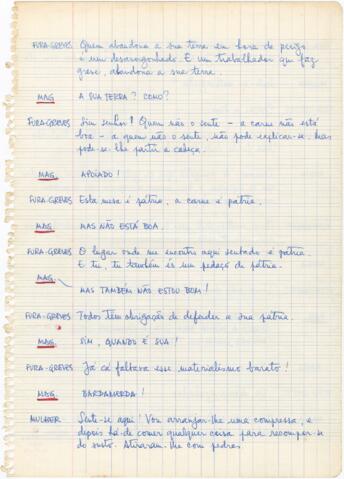 FURA-GREVES Quem abandona a sua terra em hora de perigo
é um desavergonhado. E um trabalhador que faz
greve, abandona a sua terra.
MAG. A SUA TERRA? COMO?
FURA-GREVES Sim senhor! Quem não o sente - a carne não está
boa - a quem não o sente, não pode explicar-se. Mas
pode-se-lhe partir a cabeça.
MAG. APOIADO!
FURA-GREVES Esta mesa é pátria, a carne é pátria.
MAG. MAS NÃO ESTÁ BOA.
FURA-GREVES O lugar onde me encontro aqui sentado é pátria.
E tu, tu também és um pedaço de pátria.
MAG. MAS TAMBEM NÃO ESTOU BOM!
FURA-GREVES Todos têm obrigação de defender a sua pátria.
MAG. SIM, QUANDO É SUA!
FURA-GREVES Já cá faltava esse materialismo barato!
MAG. BARDAMERDA!
MULHER Sente-se aqui! Vou arranjar-lhe uma compressa, e
depois há-de comer qualquer coisa para recompor-se
do susto. Atiraram-lhe com pedras